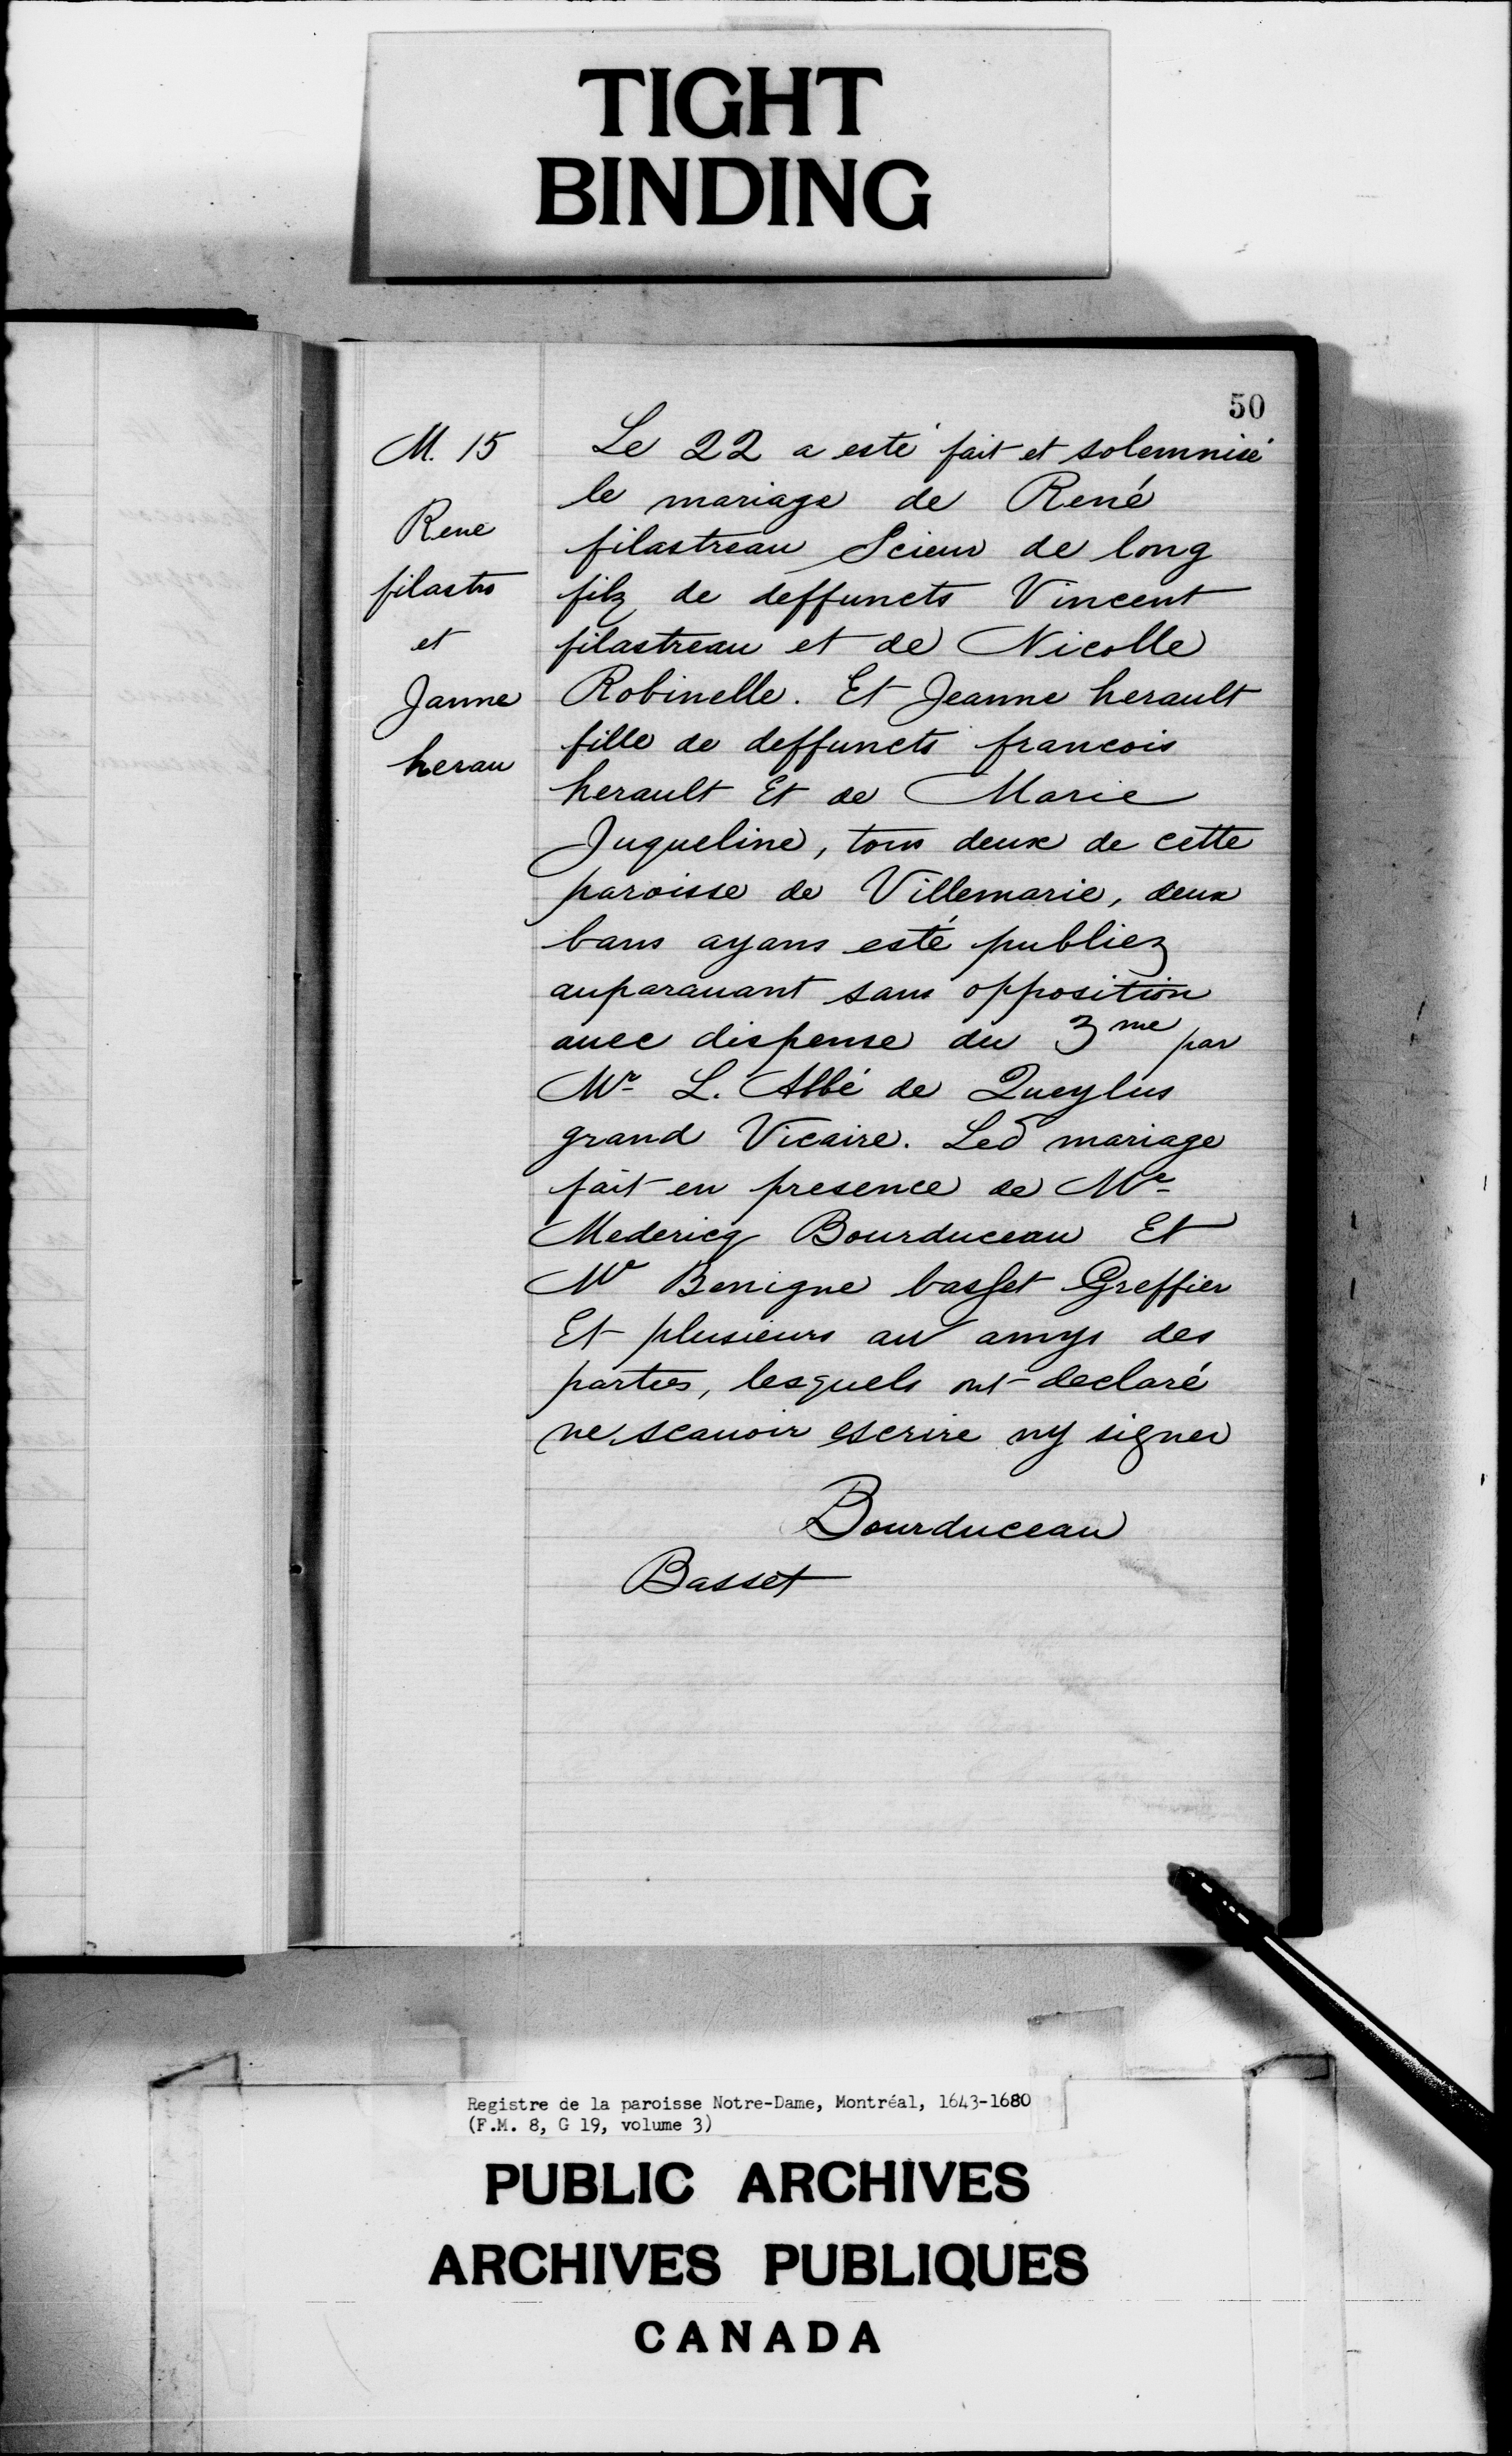 TIGHT
BINDING
50
M. 15
Rene
filastro
et
Janne
herau
Le 22 a esté fait et solemnisé
le mariage de René
filastreau Scieur de long
filz de deffuncts Vincent
filastreau et de Nicolle
Robinelle. Et Jeanne herault
fille de deffuncts francois
herault Et de Marie
Juqueline, tous deux de cette
paroisse de Villemarie, deux
bans ayans esté publiez
auparauant sans opposition
auec dispense du 3me par
Mr L. Abbé de Queylus
grand Vicaire. Led mariage
fait en presence de Mr
Medericq Bourduceau Et
Mr Benigne basset Greffier
Et plusieurs au amys des
parties, lesquels ont declaré
ne scauoir escrire ny signer
Bourduceau
Basset
Registre de la paroisse Notre-Dame, Montréal, 1643-1680
(F.M. 8, G 19, volume 3)
PUBLIC ARCHIVES
ARCHIVES PUBLIQUES
CANADA